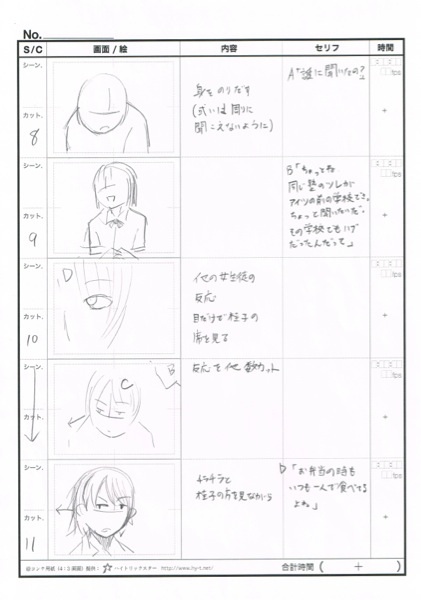 No.
S/C 画面 / 絵 内容 セリフ 時間
シーン.
カット.
8
身をのりだす
(或いは周りに
聞こえないように)
A「誰に聞いたの?」
fps
+
シーン.
カット.
9
B「ちょっとね
同じ塾のツレが
アイツの前の学校でさ。
ちょっと聞いたんだ。
その学校でもハブ
だったんだって」
fps
+
シーン.
カット.
10
D
他の女生徒の
反応
目だけが桂子の
席を見る
fps
+
シーン.
C
B
反応を他数カット
fps
カット.
+
シーン.
カット.
11
チラチラと
桂子の方を見ながら
D「お弁当の時も
いつも一人で食べてる
よね。」
fps
+
絵コンテ用紙(4:3画面) 提供: ハイトリックスター http://www.hy-t.net/
合計時間 ( + )